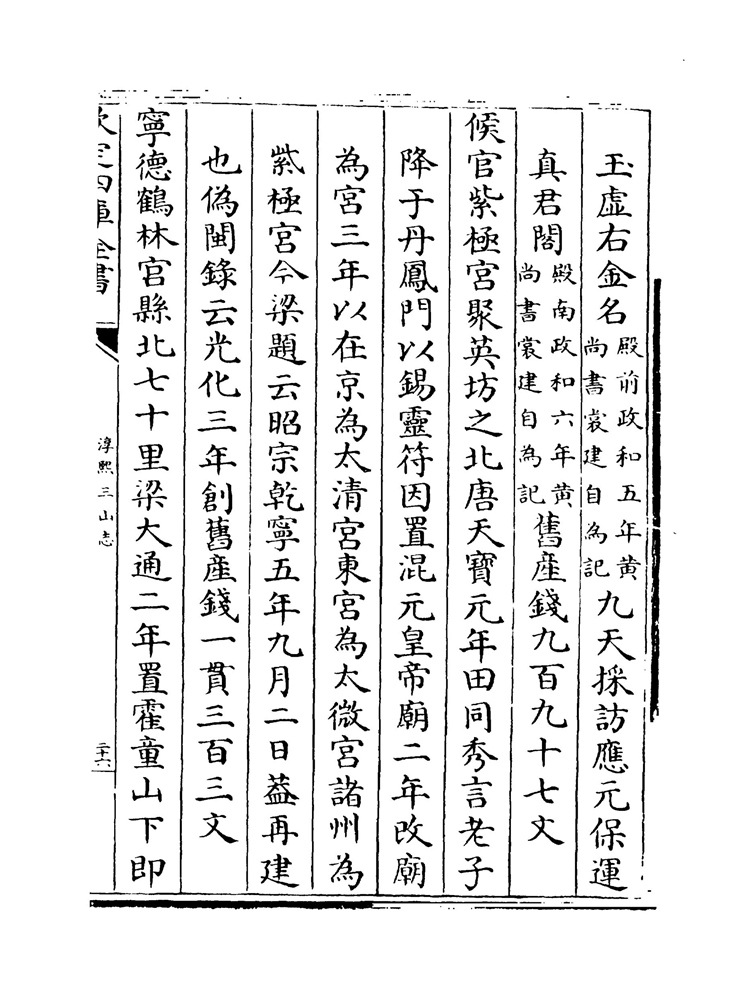 玉虛右金名殿前政和五年黄尚書裳建自為記九天採訪應元保運
真君閣殿南政和六年黄尚書裳建自為記舊産錢九百九十七文
候官紫極宮聚英坊之北唐天寶元年田同秀言老子
降于丹鳳門以錫靈符因置混元皇帝廟二年改廟
為宮三年以在京為太清宮東宮為太微宮諸州為
紫極宮今梁題云昭宗乾寧五年九月二日葢再建
也偽閩錄云光化三年創舊産錢一貫三百三文
寧德鶴林宮縣北七十里梁大通二年置霍童山下即
欽定四庫全書
淳熙三山志
二十六